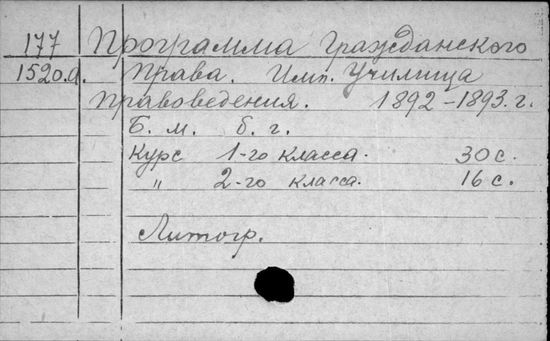 177 Программа Гражданского
1520.а. Права. Имп. Училища
Правоведения. 1892-1893. г.
Б. м. б. г.
Курс 1-го класса. 30 с.
„ 2-го класса. 16 с.
Литогр.